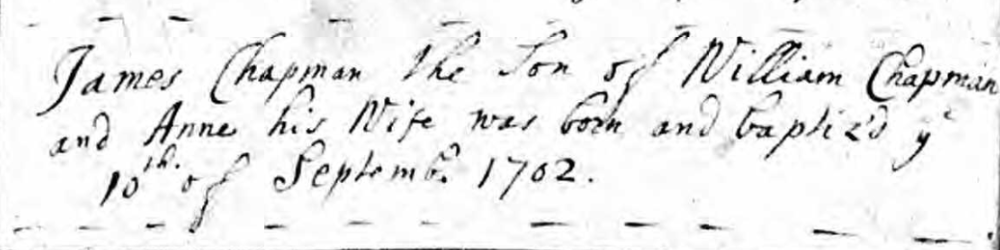 James Chapman The Son of William Chapman
and Anne his Wife was born and baptiz'd yᵉ
10th. of Septembr. 1702.